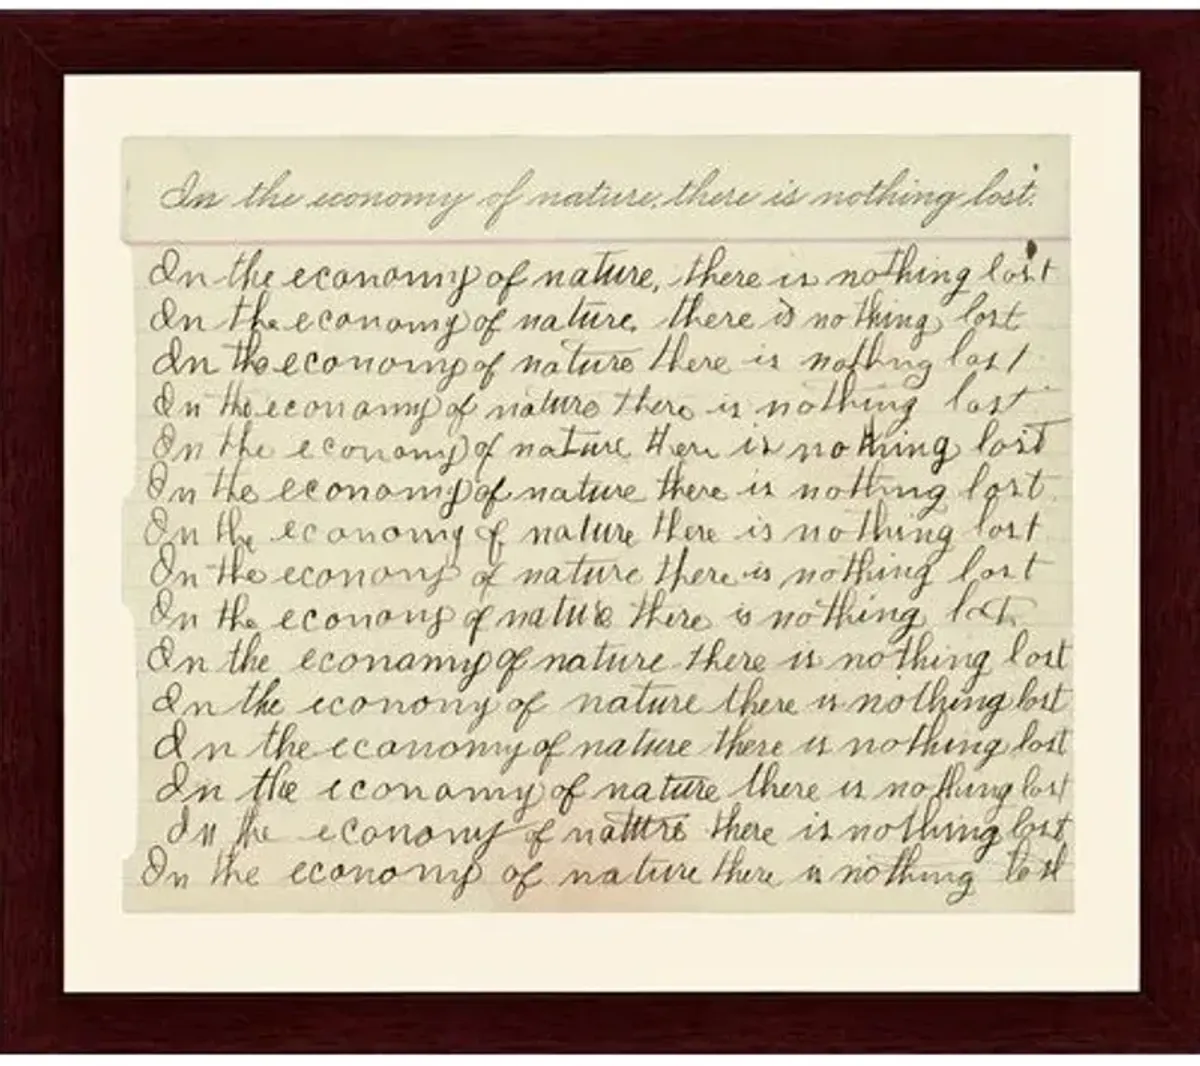 In the economy of nature, there is nothing lost.
In the economy of nature, there is nothing lost
In the economy of nature, there is nothing lost
In the economy of nature there is nothing lost
In the economy of nature there is nothing last
In the economy of nature there is nothing lost
In the economy of nature there is nothing lost
In the economy of nature there is nothing lost
In the economy of nature there is nothing lost
In the economy of nature there is nothing lost
In the economy of nature there is nothing lost
In the economy of nature there is nothing lost
In the economy of nature there is nothing lost
In the economy of nature there is nothing lost
In the economy of nature there is nothing lost
In the economy of nature there is nothing lost